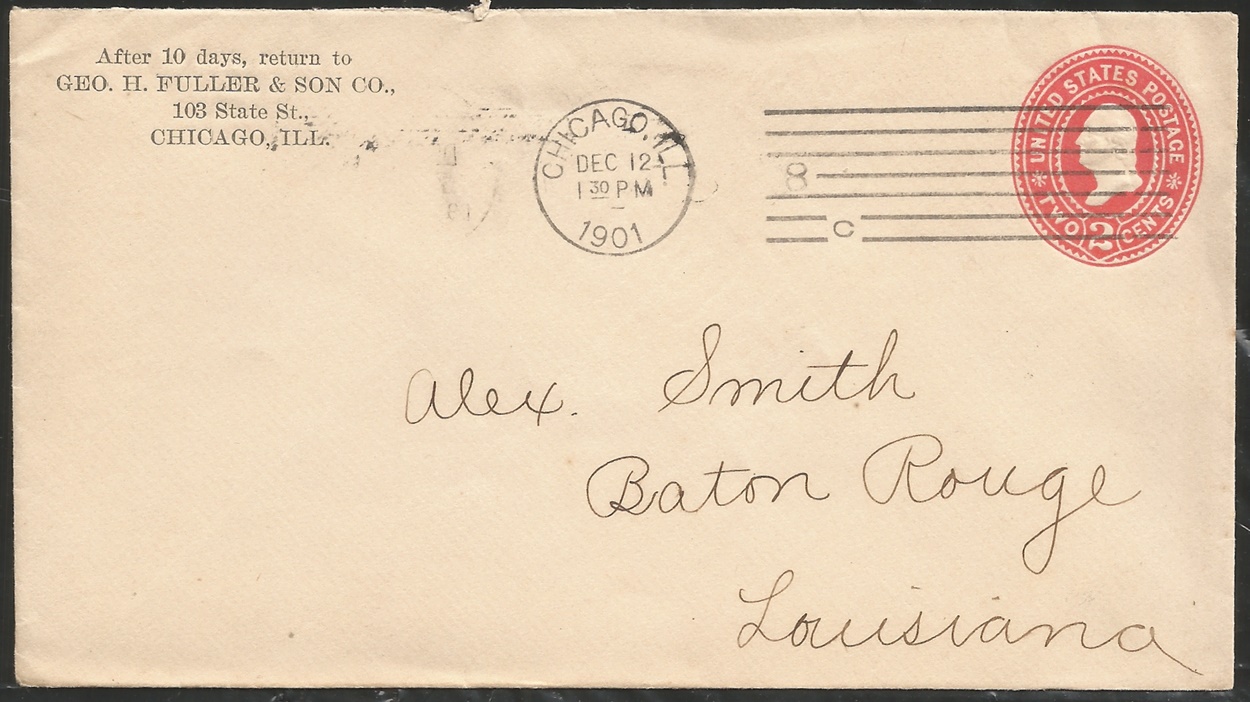 After 10 days, return to
GEO. H. FULLER & SON CO.,
103 State St.,
CHICAGO, ILL.
CHICAGO, ILL.
DEC 12
1 30 PM
1901
8
C
UNITED STATES POSTAGE
TWO 2 CENTS
Alex. Smith
Baton Rouge
Louisiana